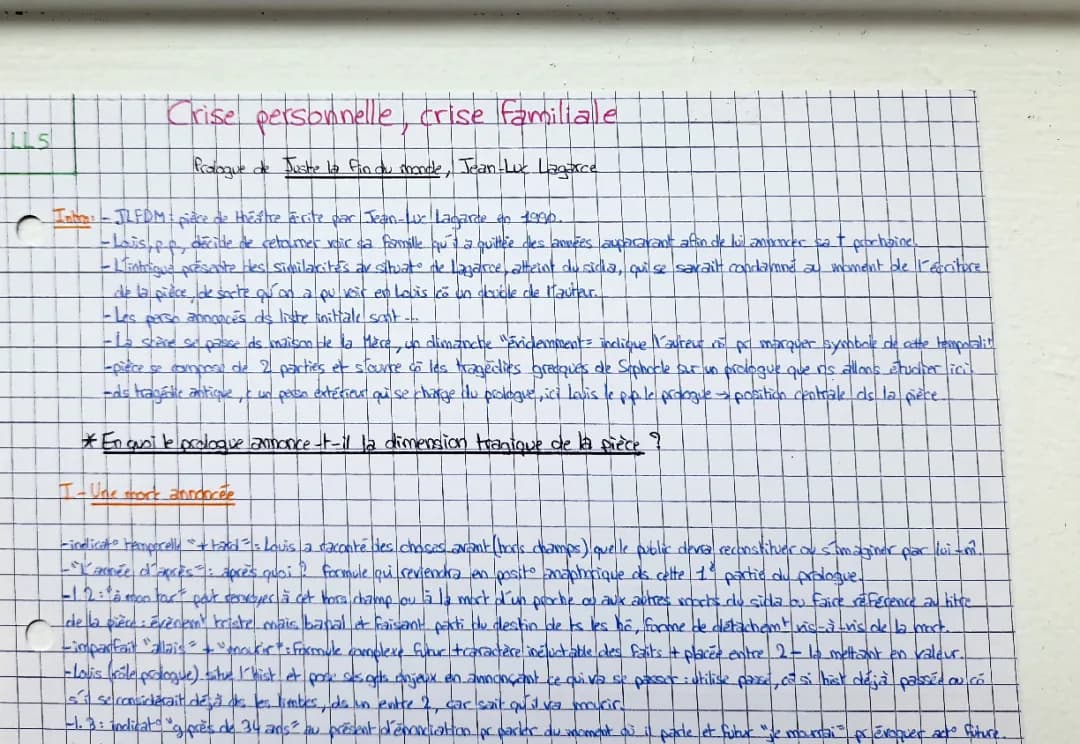 Crise personnelle, crise familiale
LL5
Prologue de Juste la fin du monde, Jean-Luc Lagarce
Intro: - JLFDM: pièce de théâtre écrite par Jean-Luc Lagarce en 1990.
- Louis, p.p, décide de retourner voir sa famille qu'il a quittée des années auparavant afin de lui annoncer sa † prochaine.
- L'intrigue présente des similarités av situat° de Lagarce, atteint du sida, qui se savait condamné au moment de l'écriture
de la pièce, de sorte qu'on a pu voir en Louis cô un double de l'auteur.
- Les perso annoncés ds liste initiale sont ...
- La scène se passe ds maison de la Mère, un dimanche "évidemment" = indique l'auteur pr marquer symbole de cette temporalité
- pièce se compose de 2 parties et s'ouvre cô les tragédies grecques de Sophocle sur un prologue que ns allons étudier ici
- ds tragédie antique, un perso extérieur qui se charge du prologue, ici Louis le pp le prologue → position centrale ds la pièce.
* En quoi le prologue annonce-t-il la dimension tragique de la pièce ?
I - Une mort annoncée
- indicat° temporelle "+ tard": Louis a raconté des choses avant (hors champs) quelle public devra reconstituer ou s'imaginer par lui-m̂.
- "L'année d'après": après quoi ? formule qui reviendra en posit° anaphorique ds cette 1è partie du prologue.
- l.2: "à mon tour" peut renvoyer à cet hors champ ou à la mort d'un proche ou aux autres morts du sida ou faire référence au titre
de la pièce: évènemt triste mais banal et faisant parti du destin de ts les hô, forme de détachemt vis-à-vis de la mort.
- imparfait "allais" + "mourir": formule complexe futur + caractère inéluctable des faits + placée entre 2 - la mettant en valeur.
- Louis (rôle prologue) situe l'hist et pose ses gds enjeux en annonçant ce qui va se passer: utilise passé, cô si hist déjà passée ou cô
s'il se considérait déjà ds les limbes, ds un entre 2, car sait qu'il va mourir.
- l.3: indicat° "g près de 34 ans" au présent d'énonciation pr parler du moment où il parle et futur "je mourrai" pr évoquer act° future.